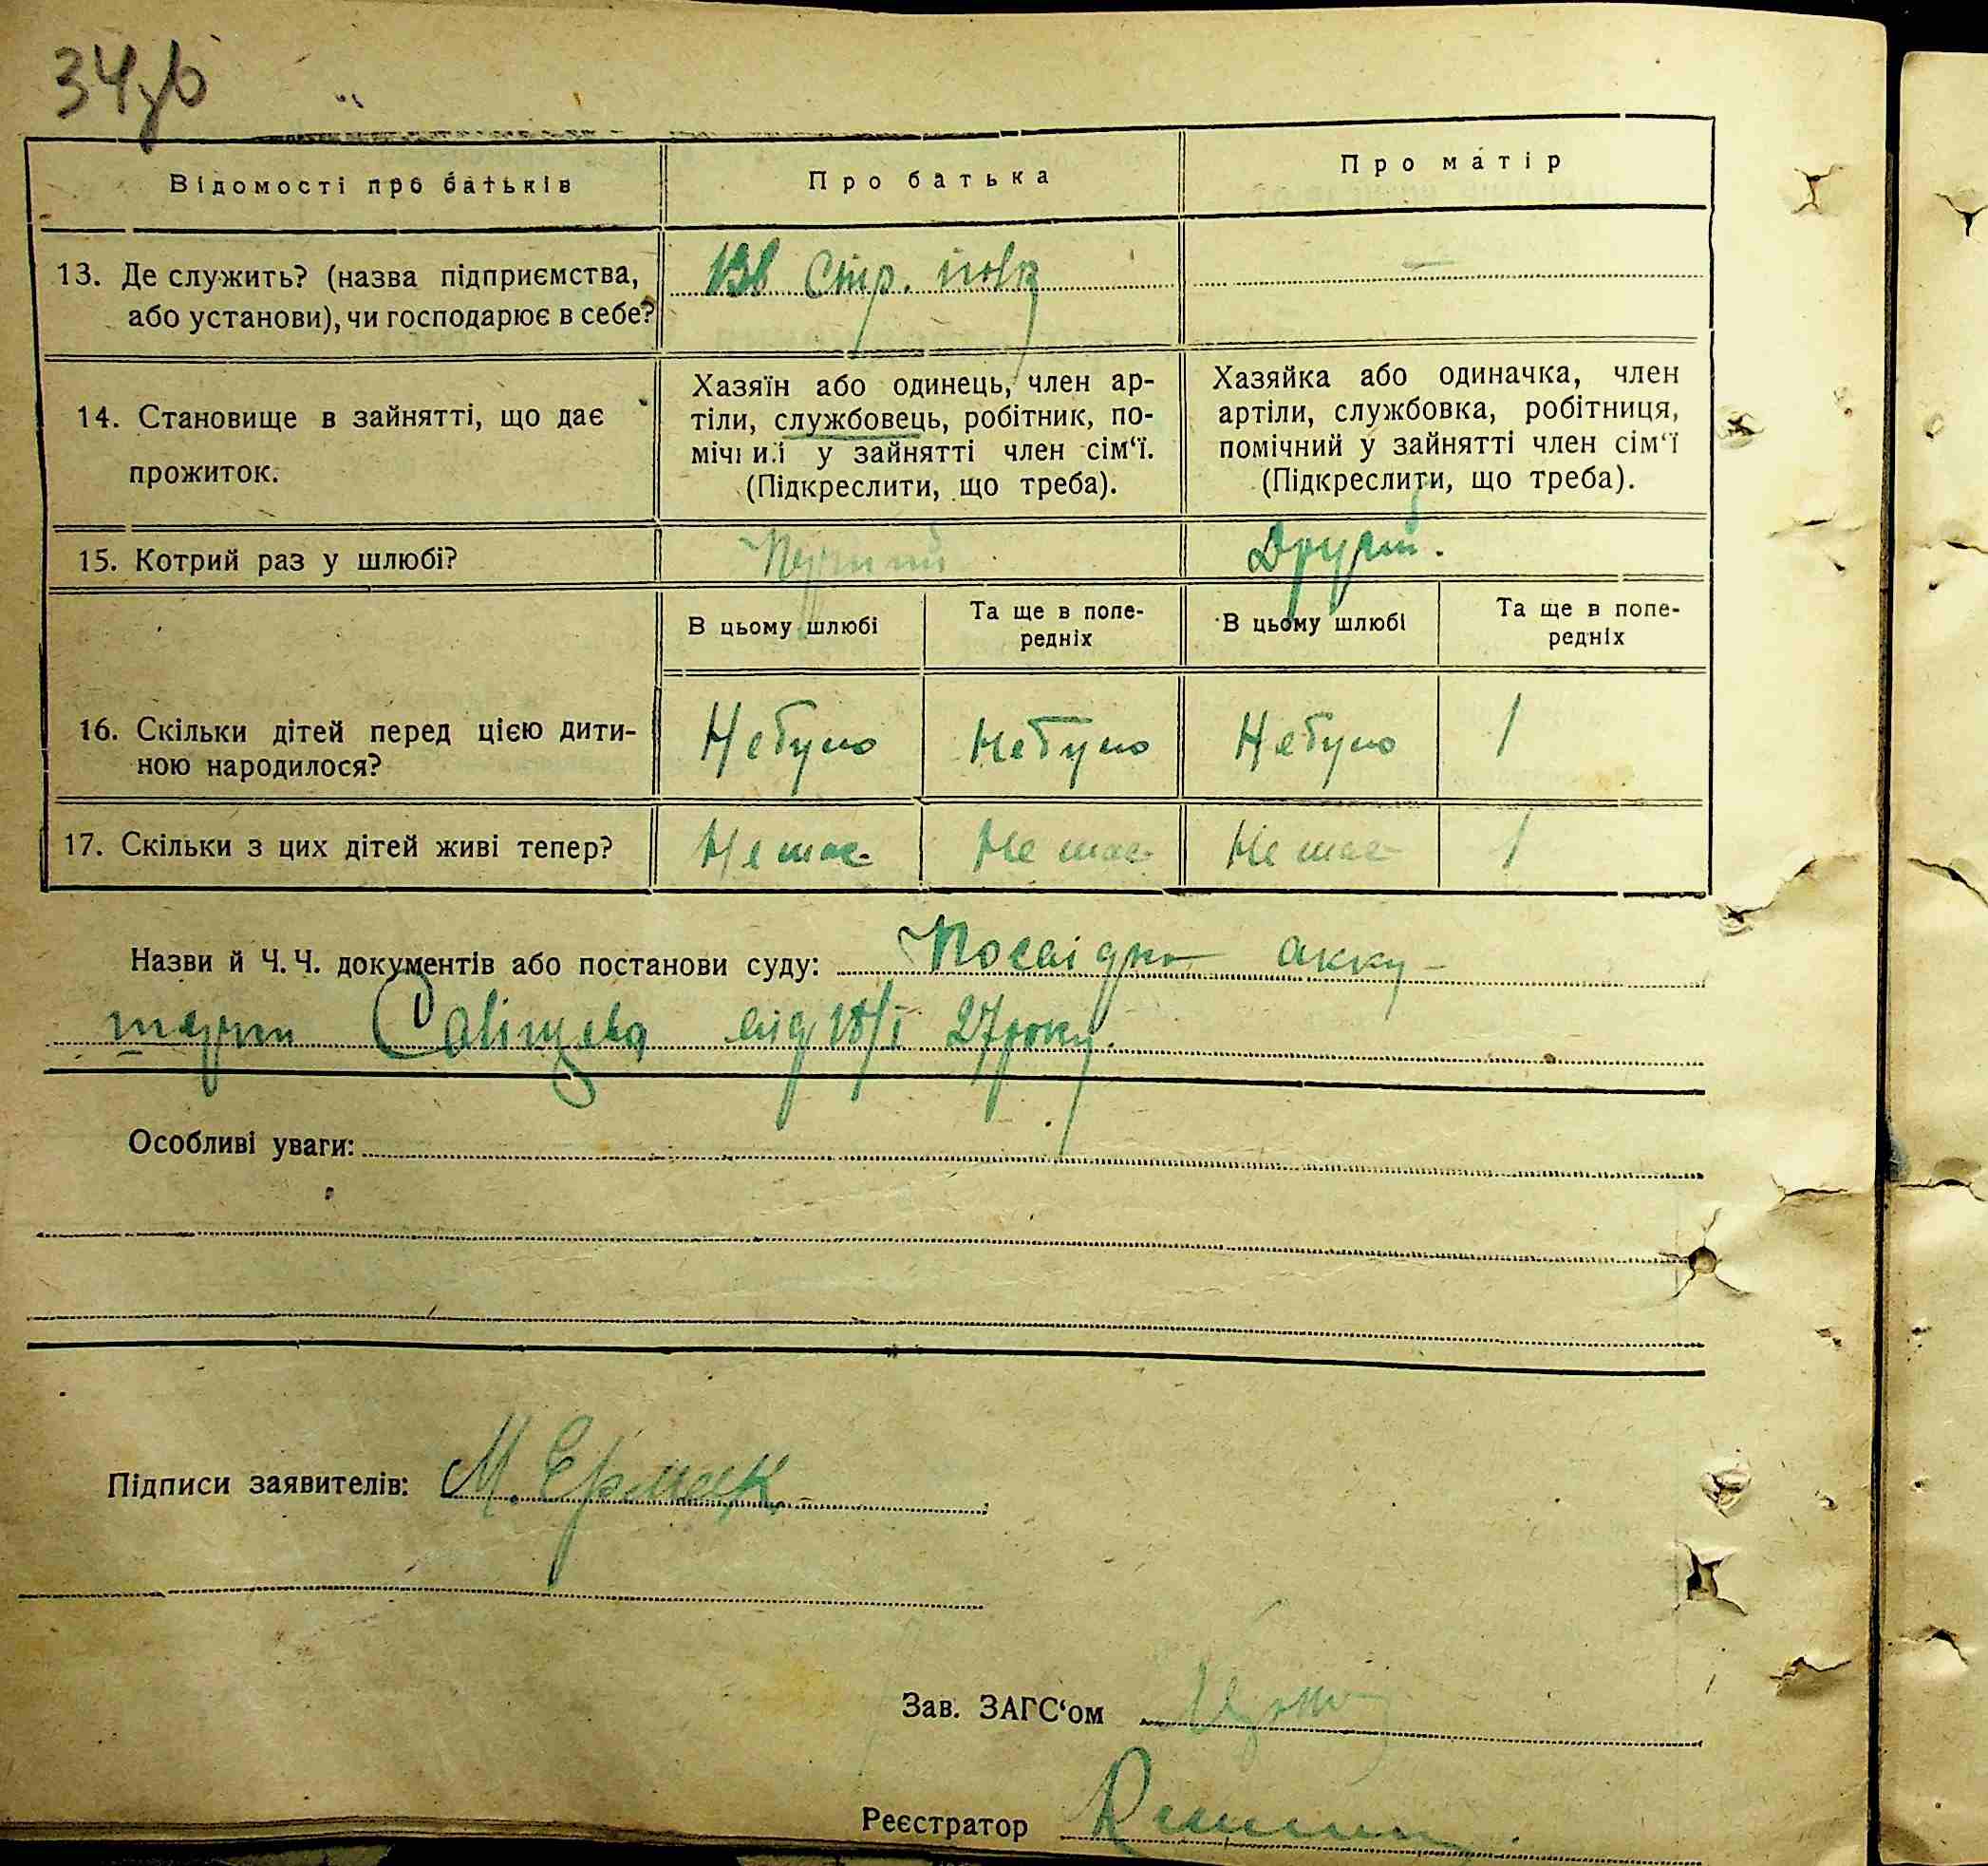 34
Відомості про батьків
Про батька
Про матір
13. Де служить? (назва підприємства,
або установи), чи господарює в себе?
Стр. полк
—
14. Становище в зайнятті, що дає
прожиток.
Хазяїн або одинець, член ар-
тіли, службовець, робітник, по-
мічний у зайнятті член сім‘ї.
(Підкреслити, що треба).
Хазяйка або одиначка, член
артіли, службовка, робітниця,
помічний у зайнятті член сім‘ї
(Підкреслити, що треба).
15. Котрий раз у шлюбі?
Перший
Другий.
В цьому шлюбі
Та ще в попе-
редніх
В цьому шлюбі
Та ще в попе-
редніх
16. Скільки дітей перед цією дити-
ною народилося?
Небуло
Небуло
Небуло
1
17. Скільки з цих дітей живі тепер?
Немає
Немає
Немає
1
Назви й Ч. Ч. документів або постанови суду: Посвідка акку-
шерки від 18/I 27 року.
Особливі уваги:
Підписи заявителів: М. Ермак
Зав. ЗАГС‘ом
Реєстратор